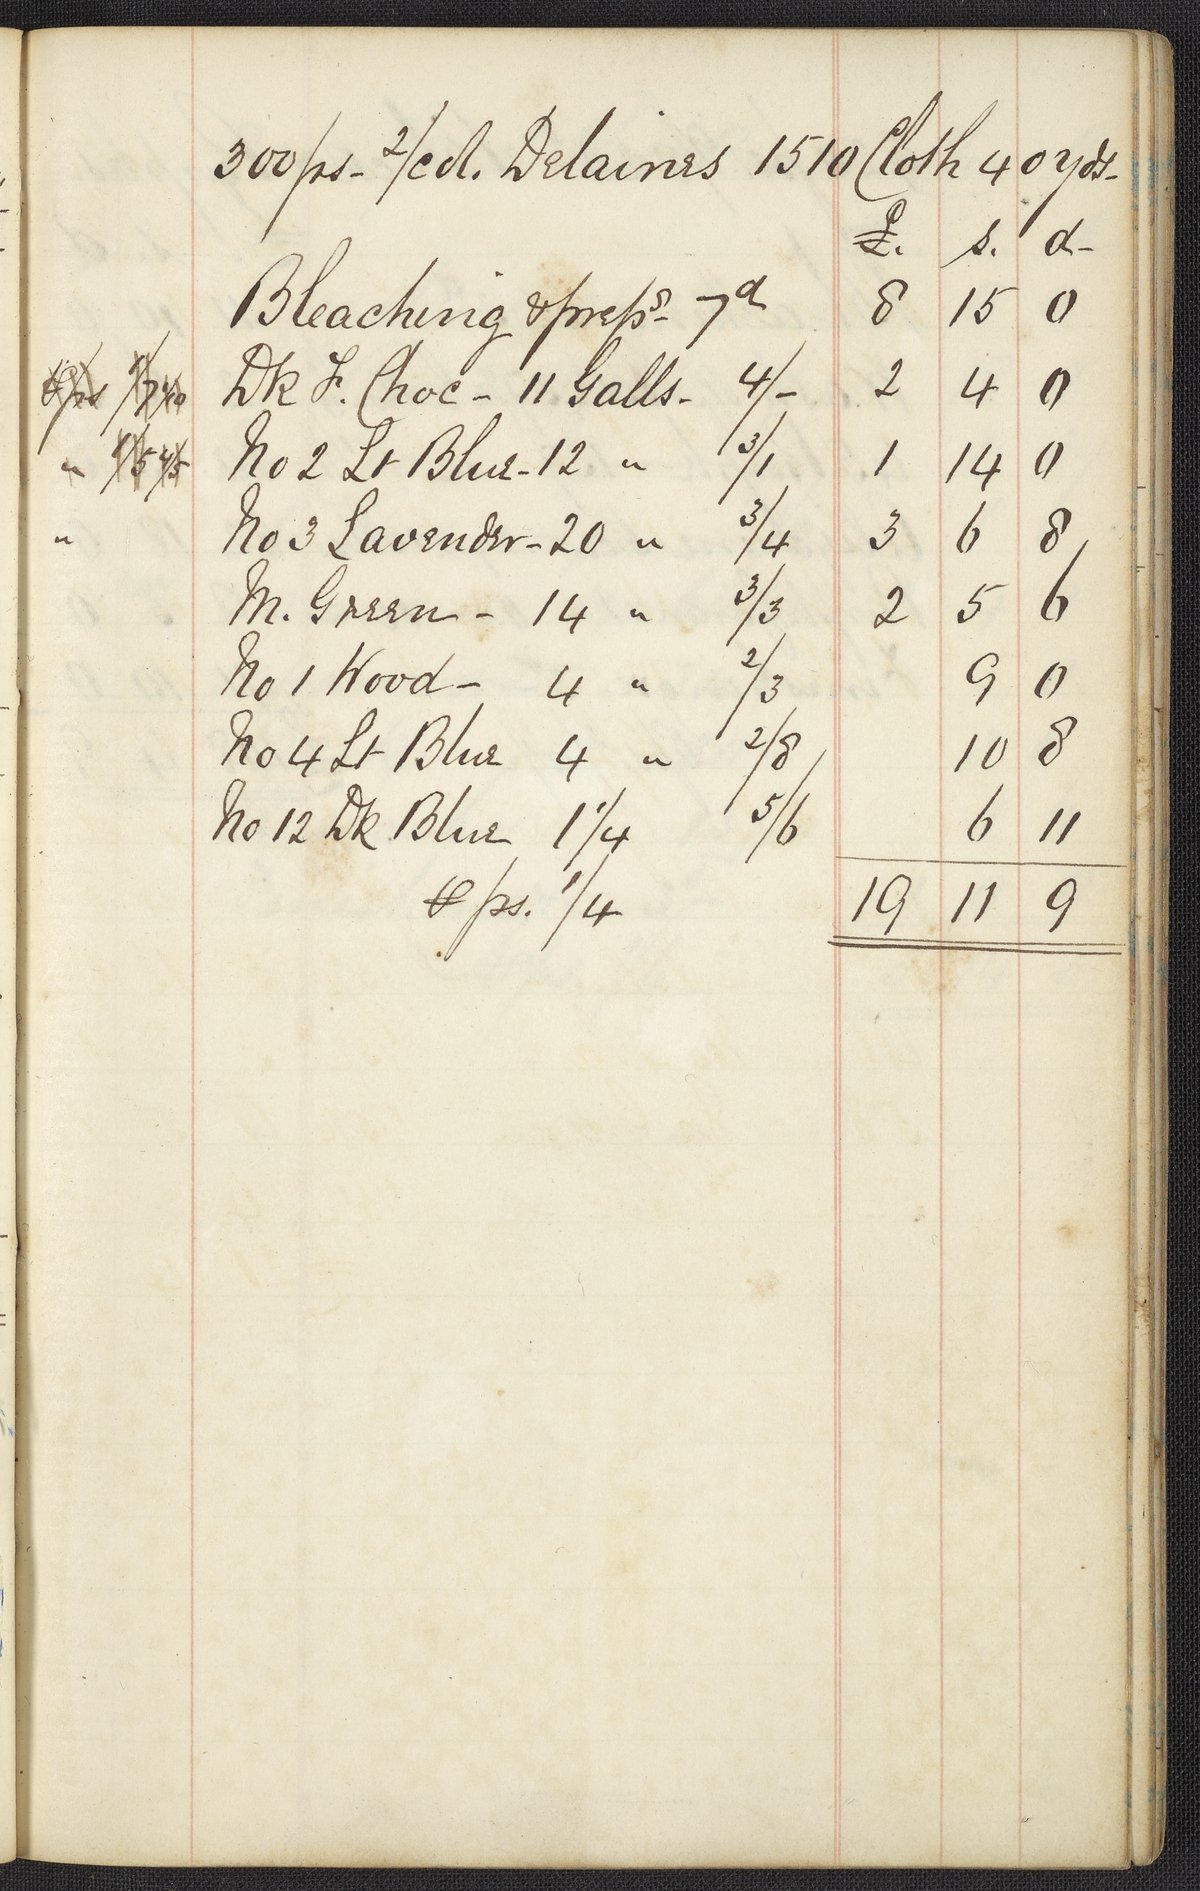 300 ps- 2/col. Delaines 1510 Cloth 40 yds-
£. s. d-
Bleaching & preps- 7d 8 15 0
Dk F. Choc - 11 Galls- 4/- 2 4 0
" No 2 Lt Blue - 12 " 3/1 1 14 0
" No 3 Lavender - 20 " 3/4 3 6 8
M. Green - 14 " 3/3 2 5 6
No 1 Wood - 4 " 2/3 9 0
No 4 Lt Blue 4 " 2/8 10 8
No 12 Dk Blue 1 1/4 5/6 6 11
19 11 9
ps. 1/4